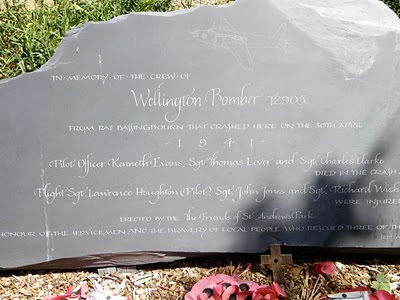 IN MEMORY OF THE CREW OF
Wellington Bomber
FROM RAF BASSINGBOURN THAT CRASHED HERE ON THE 30TH APRIL
- 1 9 4 1 -
Pilot Officer Kenneth Evans, Sgt Thomas Lever and Sgt Charles Clarke
DIED IN THE CRASH
Flight Sgt Lawrence Houghton (Pilot) Sgt John Jones and Sgt Richard Wish
WERE INJURED
ERECTED BY THE The Friends of St Andrews Park
HONOUR OF THE SERVICEMEN AND THE BRAVERY OF LOCAL PEOPLE WHO RESCUED THREE OF THE